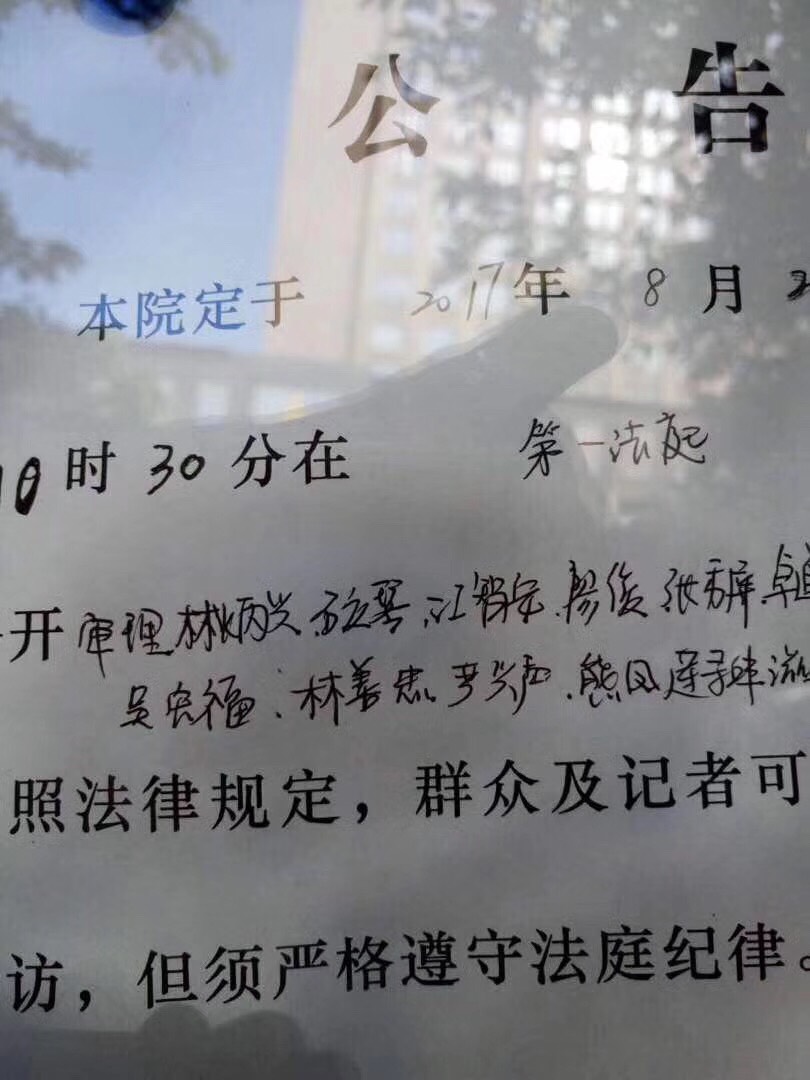 公 告
本院定于 2017年 8月 2
10时30分在 第一法庭
开审理林炳兴、江 、廖俊、张秀屏、卓
吴宏福、林善忠、罗兴 、熊凤莲寻衅滋
照法律规定，群众及记者可
访，但须严格遵守法庭纪律。